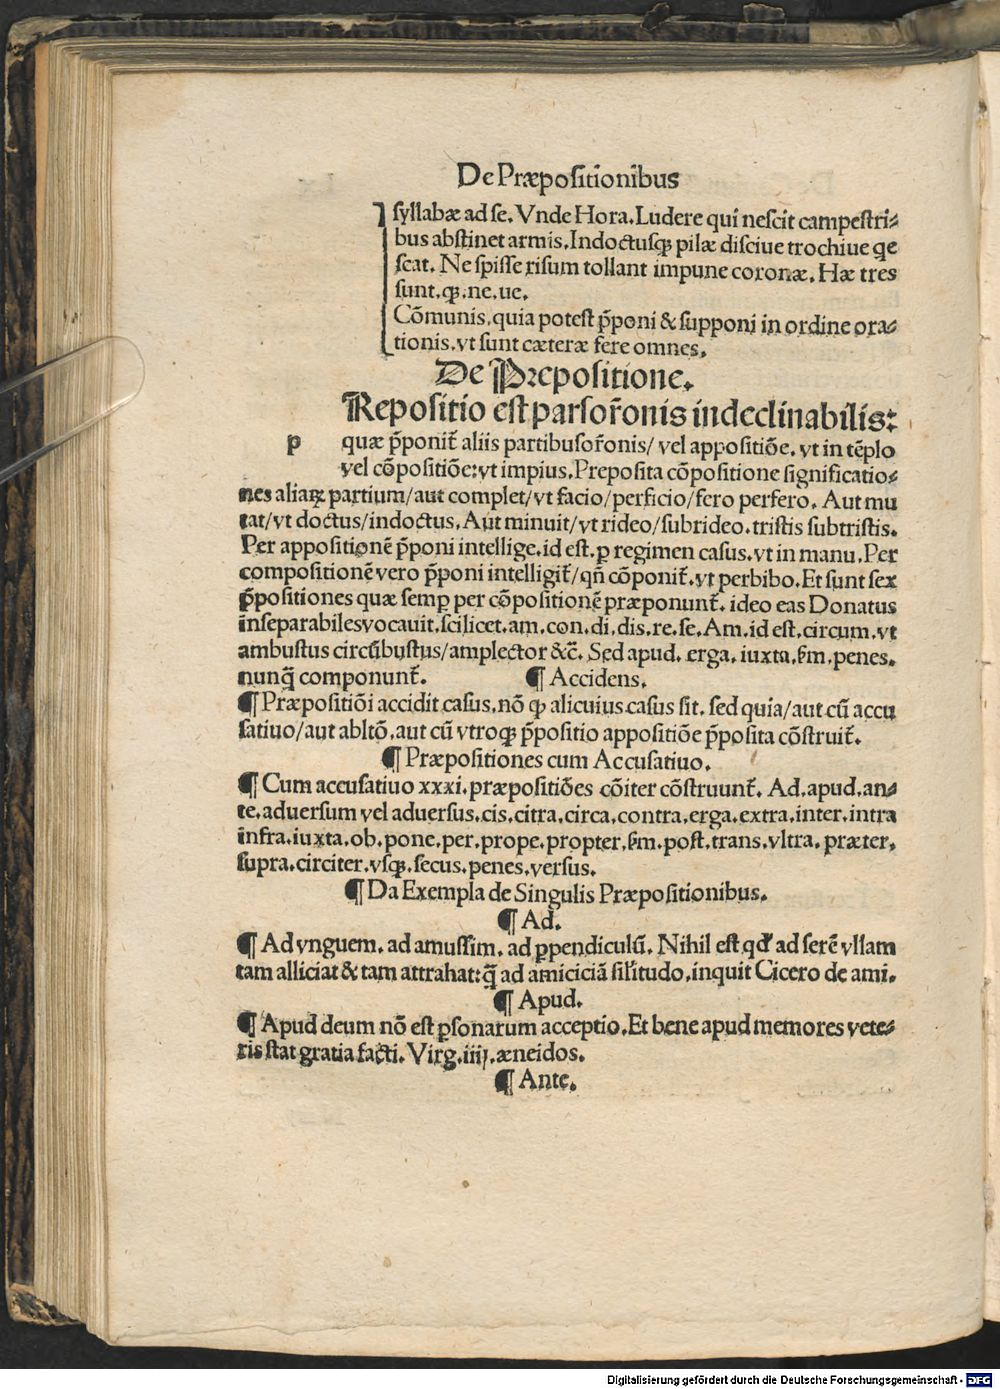 De Præpositionibus
syllabæ ad se. Vnde Hora. Ludere qui nescit campestri-
bus abstinet armis. Indoctusqꝫ pilæ disciue trochiue qe
scat. Ne spisse risum tollant impune coronæ. Hæ tres
sunt. qꝫ. ne. ue.
Cōmunis. quia potest p̄poni & supponi in ordine ora-
tionis. vt sunt cæteræ fere omnes.
De Prepositione.
Repositio est pars or̄onis indeclinabilis:
p quæ p̄ponit̄ aliis partibus or̄onis/ vel appositiōe. vt in tēplo
vel cōpositiōe: vt impius. Preposita cōpositione significatio-
nes aliaꝝ partium/ aut complet/ vt facio/ perficio/ fero perfero. Aut mu
tat/ vt doctus/ indoctus. Aut minuit/ vt rideo/ subrideo. tristis subtristis.
Per appositionē p̄poni intellige. id est. ꝑ regimen casus. vt in manu. Per
compositionē vero p̄poni intelligit̄/ qn̄ cōponit̄. vt perbibo. Et sunt sex
p̄positiones quæ semꝑ per cōpositionē præponunt̄. ideo eas Donatus
inseparabiles vocauit. scilicet. am. con. di. dis. re. se. Am. id est. circum. vt
ambustus circūbustus/ amplector &c̄. Sed apud. erga. iuxta. ẜm. penes.
nunq̄ componunt̄. ¶ Accidens.
¶ Præpositiōi accidit casus. nō ꝙ alicuius casus sit. sed quia/ aut cū accu
satiuo/ aut abltō. aut cū vtroqꝫ p̄positio appositiōe p̄posita cōstruit̄.
¶ Præpositiones cum Accusatiuo.
¶ Cum accusatiuo xxxi. præpositiōes cōiter cōstruunt̄. Ad. apud. an-
te. aduersum vel aduersus. cis. citra. circa. contra. erga. extra. inter. intra
infra. iuxta. ob. pone. per. prope. propter. ẜm. post. trans. vltra. præter.
supra. circiter. vsqꝫ. secus. penes. versus.
¶ Da Exempla de Singulis Præpositionibus.
¶ Ad.
¶ Ad vnguem. ad amussim. ad ꝑpendiculū. Nihil est qd' ad serē vllam
tam alliciat & tam attrahat: q̄ ad amiciciā sil'itudo. inquit Cicero de ami.
¶ Apud.
¶ Apud deum nō est ꝑsonarum acceptio. Et bene apud memores vete-
ris stat gratia facti. Virg. iiij. æneidos.
¶ Ante.
Digitalisierung gefördert durch die Deutsche Forschungsgemeinschaft - DFG